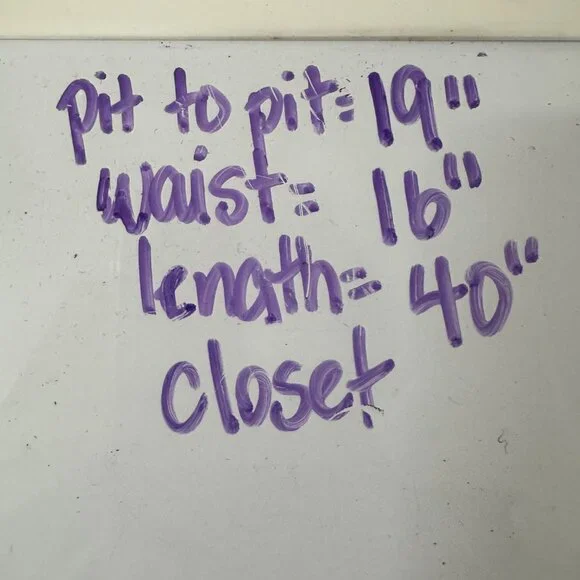 pit to pit= 19"
waist= 16"
length= 40"
closet